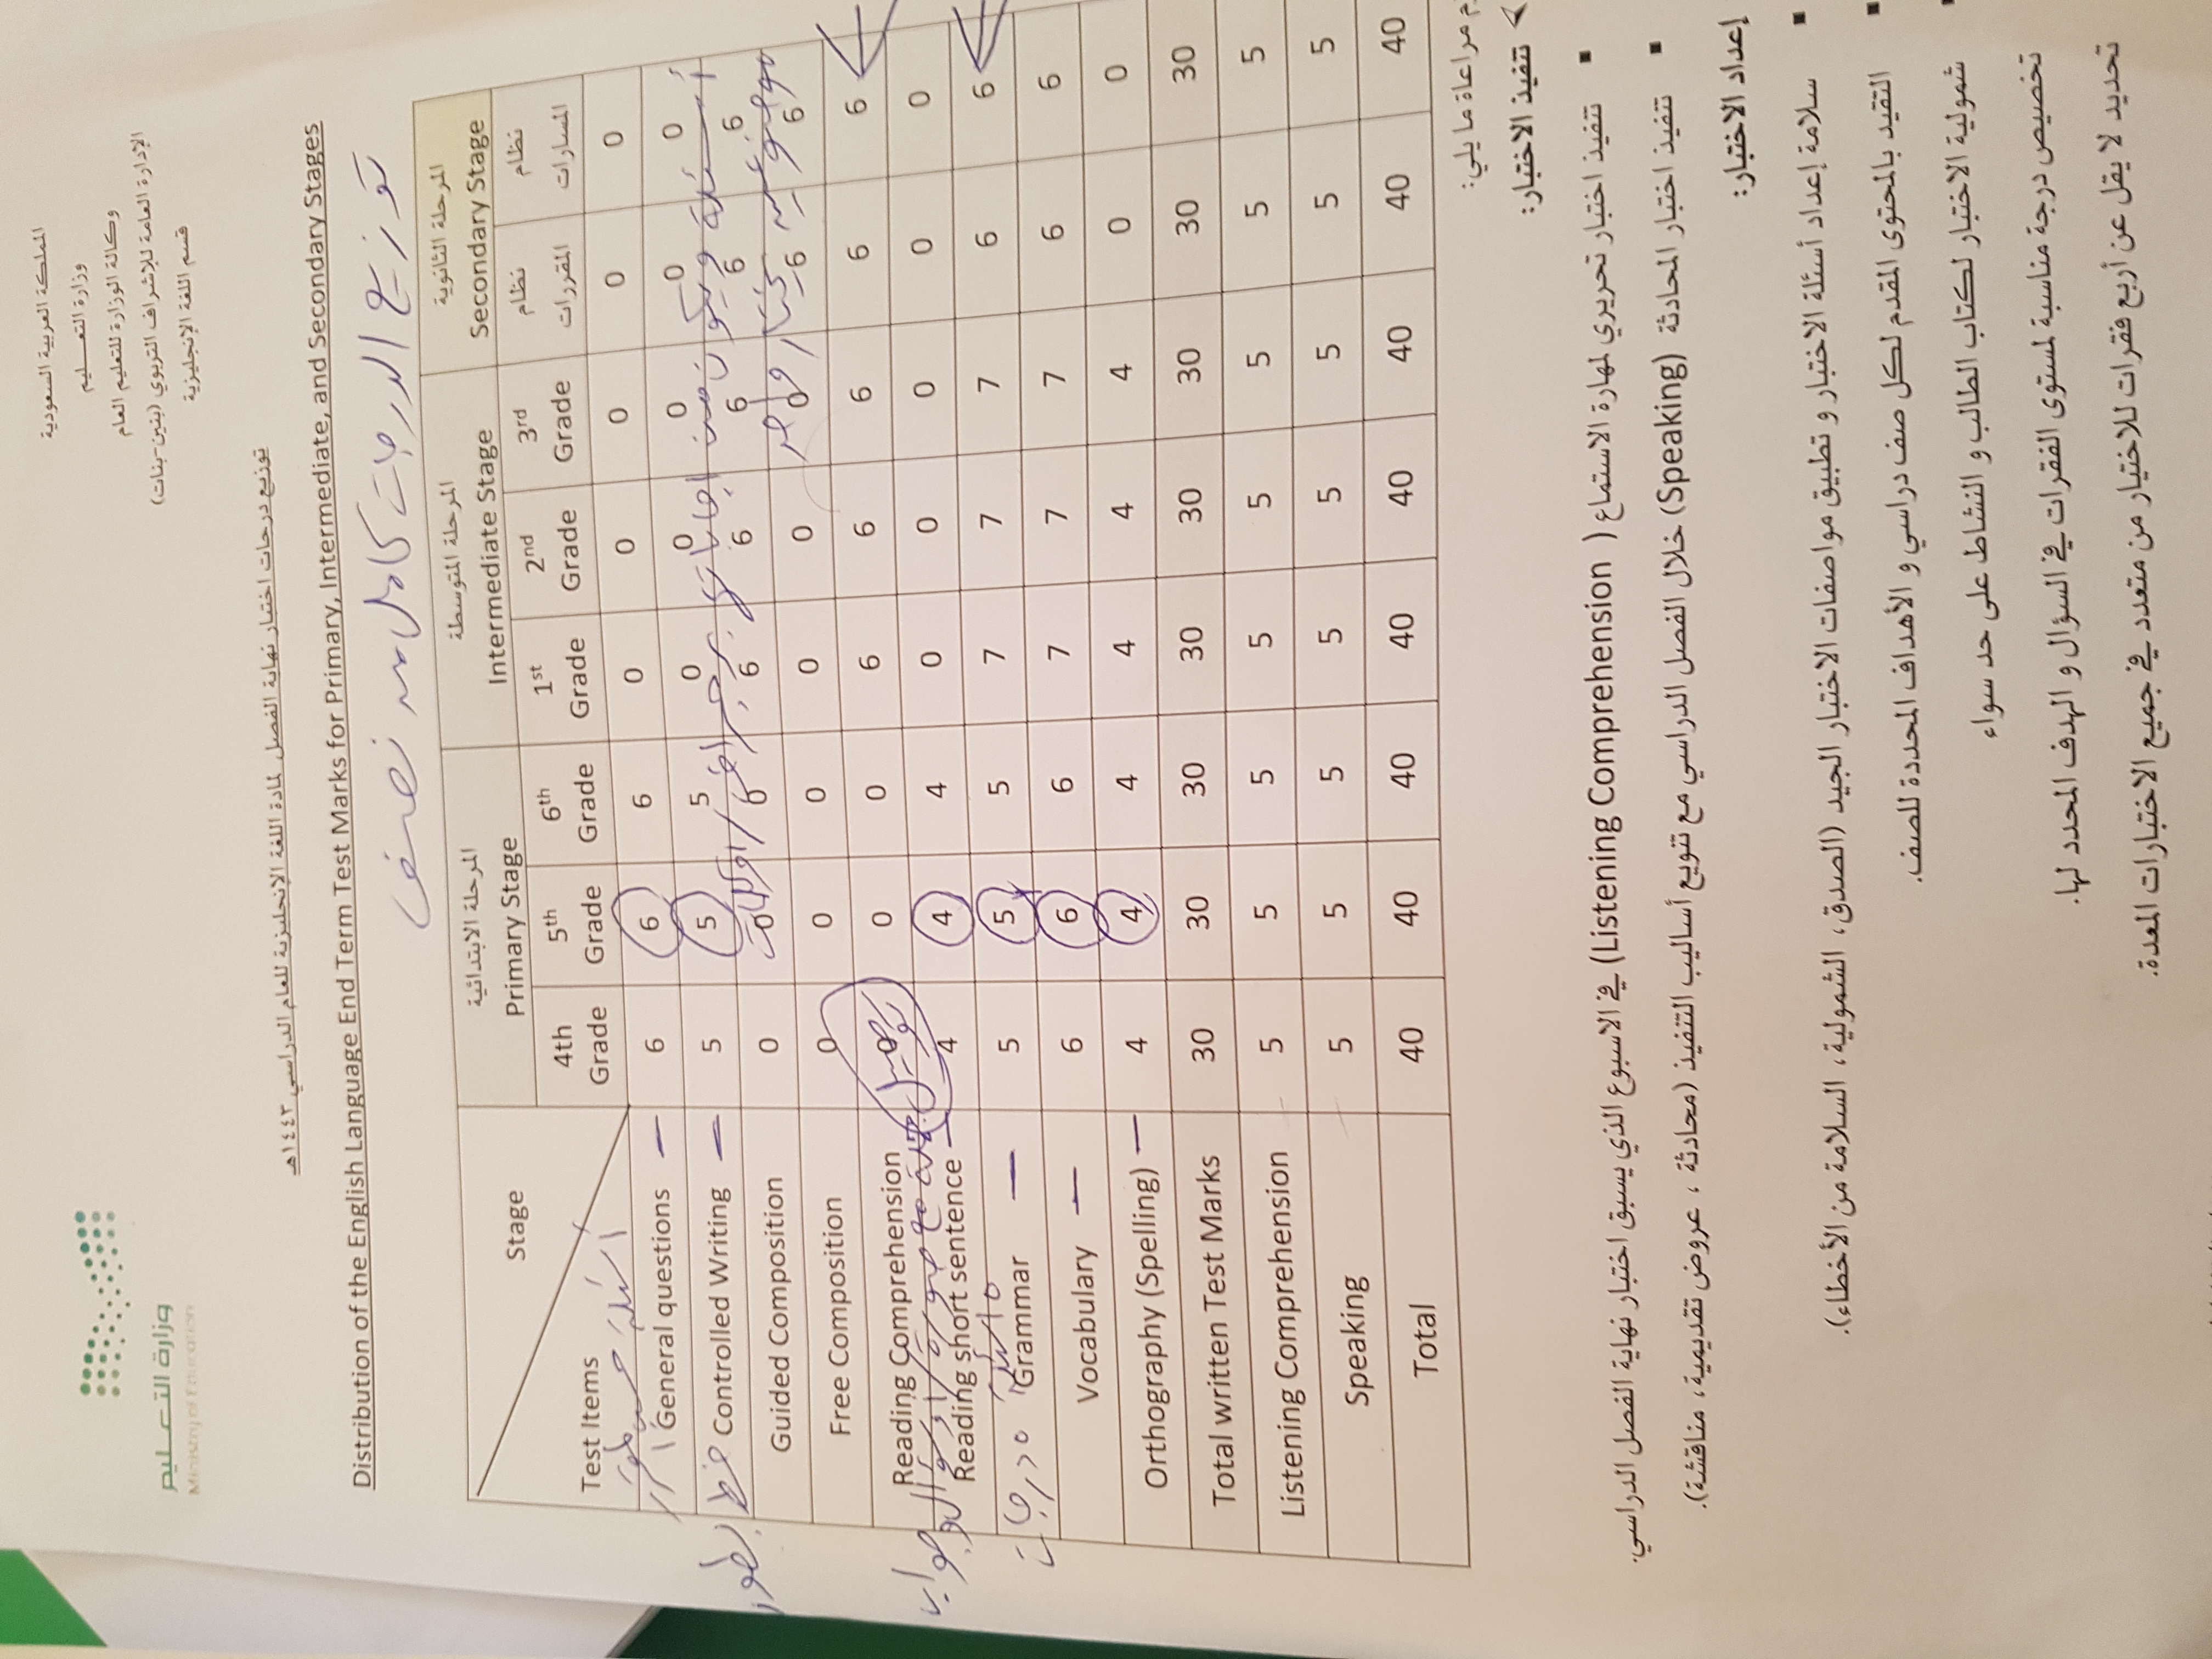 المملكة العربية السعودية
وزارة التعـــليم
وكالة الوزارة للتعليم العام
الإدارة العامة للإشراف التربوي (بنين-بنات)
قسم اللغة الإنجليزية
وزارة التعـــليم
Ministry of Education
توزيع درجات اختبار نهاية الفصل لمادة اللغة الإنجليزية للعام الدراسي ١٤٤٣هـ
Distribution of the English Language End Term Test Marks for Primary, Intermediate, and Secondary Stages
توزيع الدرجات كامل من نصف
Stage
المرحلة الابتدائية
Primary Stage
المرحلة المتوسطة
Intermediate Stage
المرحلة الثانوية
Secondary Stage
Test Items
4th Grade
5th Grade
6th Grade
1st Grade
2nd Grade
3rd Grade
نظام المقررات
نظام المسارات
General questions 6 6 6 0 0 0 0 0
Controlled Writing 5 5 5 0 0 0 0 0
Guided Composition 0 0 0 6 6 6 6 6
Free Composition 0 0 0 0 0 0 6 6
Reading Comprehension 0 0 0 6 6 6 6 6
Reading short sentence 4 4 4 0 0 0 0 0
Grammar 5 5 5 7 7 7 6 6
Vocabulary 6 6 6 7 7 7 6 6
Orthography (Spelling) 4 4 4 4 4 4 0 0
Total written Test Marks 30 30 30 30 30 30 30 30
Listening Comprehension 5 5 5 5 5 5 5 5
Speaking 5 5 5 5 5 5 5 5
Total 40 40 40 40 40 40 40 40
مراعاة ما يلي:
تنفيذ الاختبار:
تنفيذ اختبار تحريري لمهارة الاستماع ( Listening Comprehension) في الاسبوع الذي يسبق اختبار نهاية الفصل الدراسي.
تنفيذ اختبار المحادثة (Speaking) خلال الفصل الدراسي مع تنويع أساليب التنفيذ (محادثة ، عروض تقديمية، مناقشة).
إعداد الاختبار:
سلامة إعداد أسئلة الاختبار و تطبيق مواصفات الاختبار الجيد (الصدق، الشمولية، السلامة من الأخطاء).
التقيد بالمحتوى المقدم لكل صف دراسي و الأهداف المحددة للصف.
شمولية الاختبار لكتاب الطالب و النشاط على حد سواء
تخصيص درجة مناسبة لمستوى الفقرات في السؤال و الهدف المحدد لها.
تحديد لا يقل عن أربع فقرات للاختيار من متعدد في جميع الاختبارات المعدة.